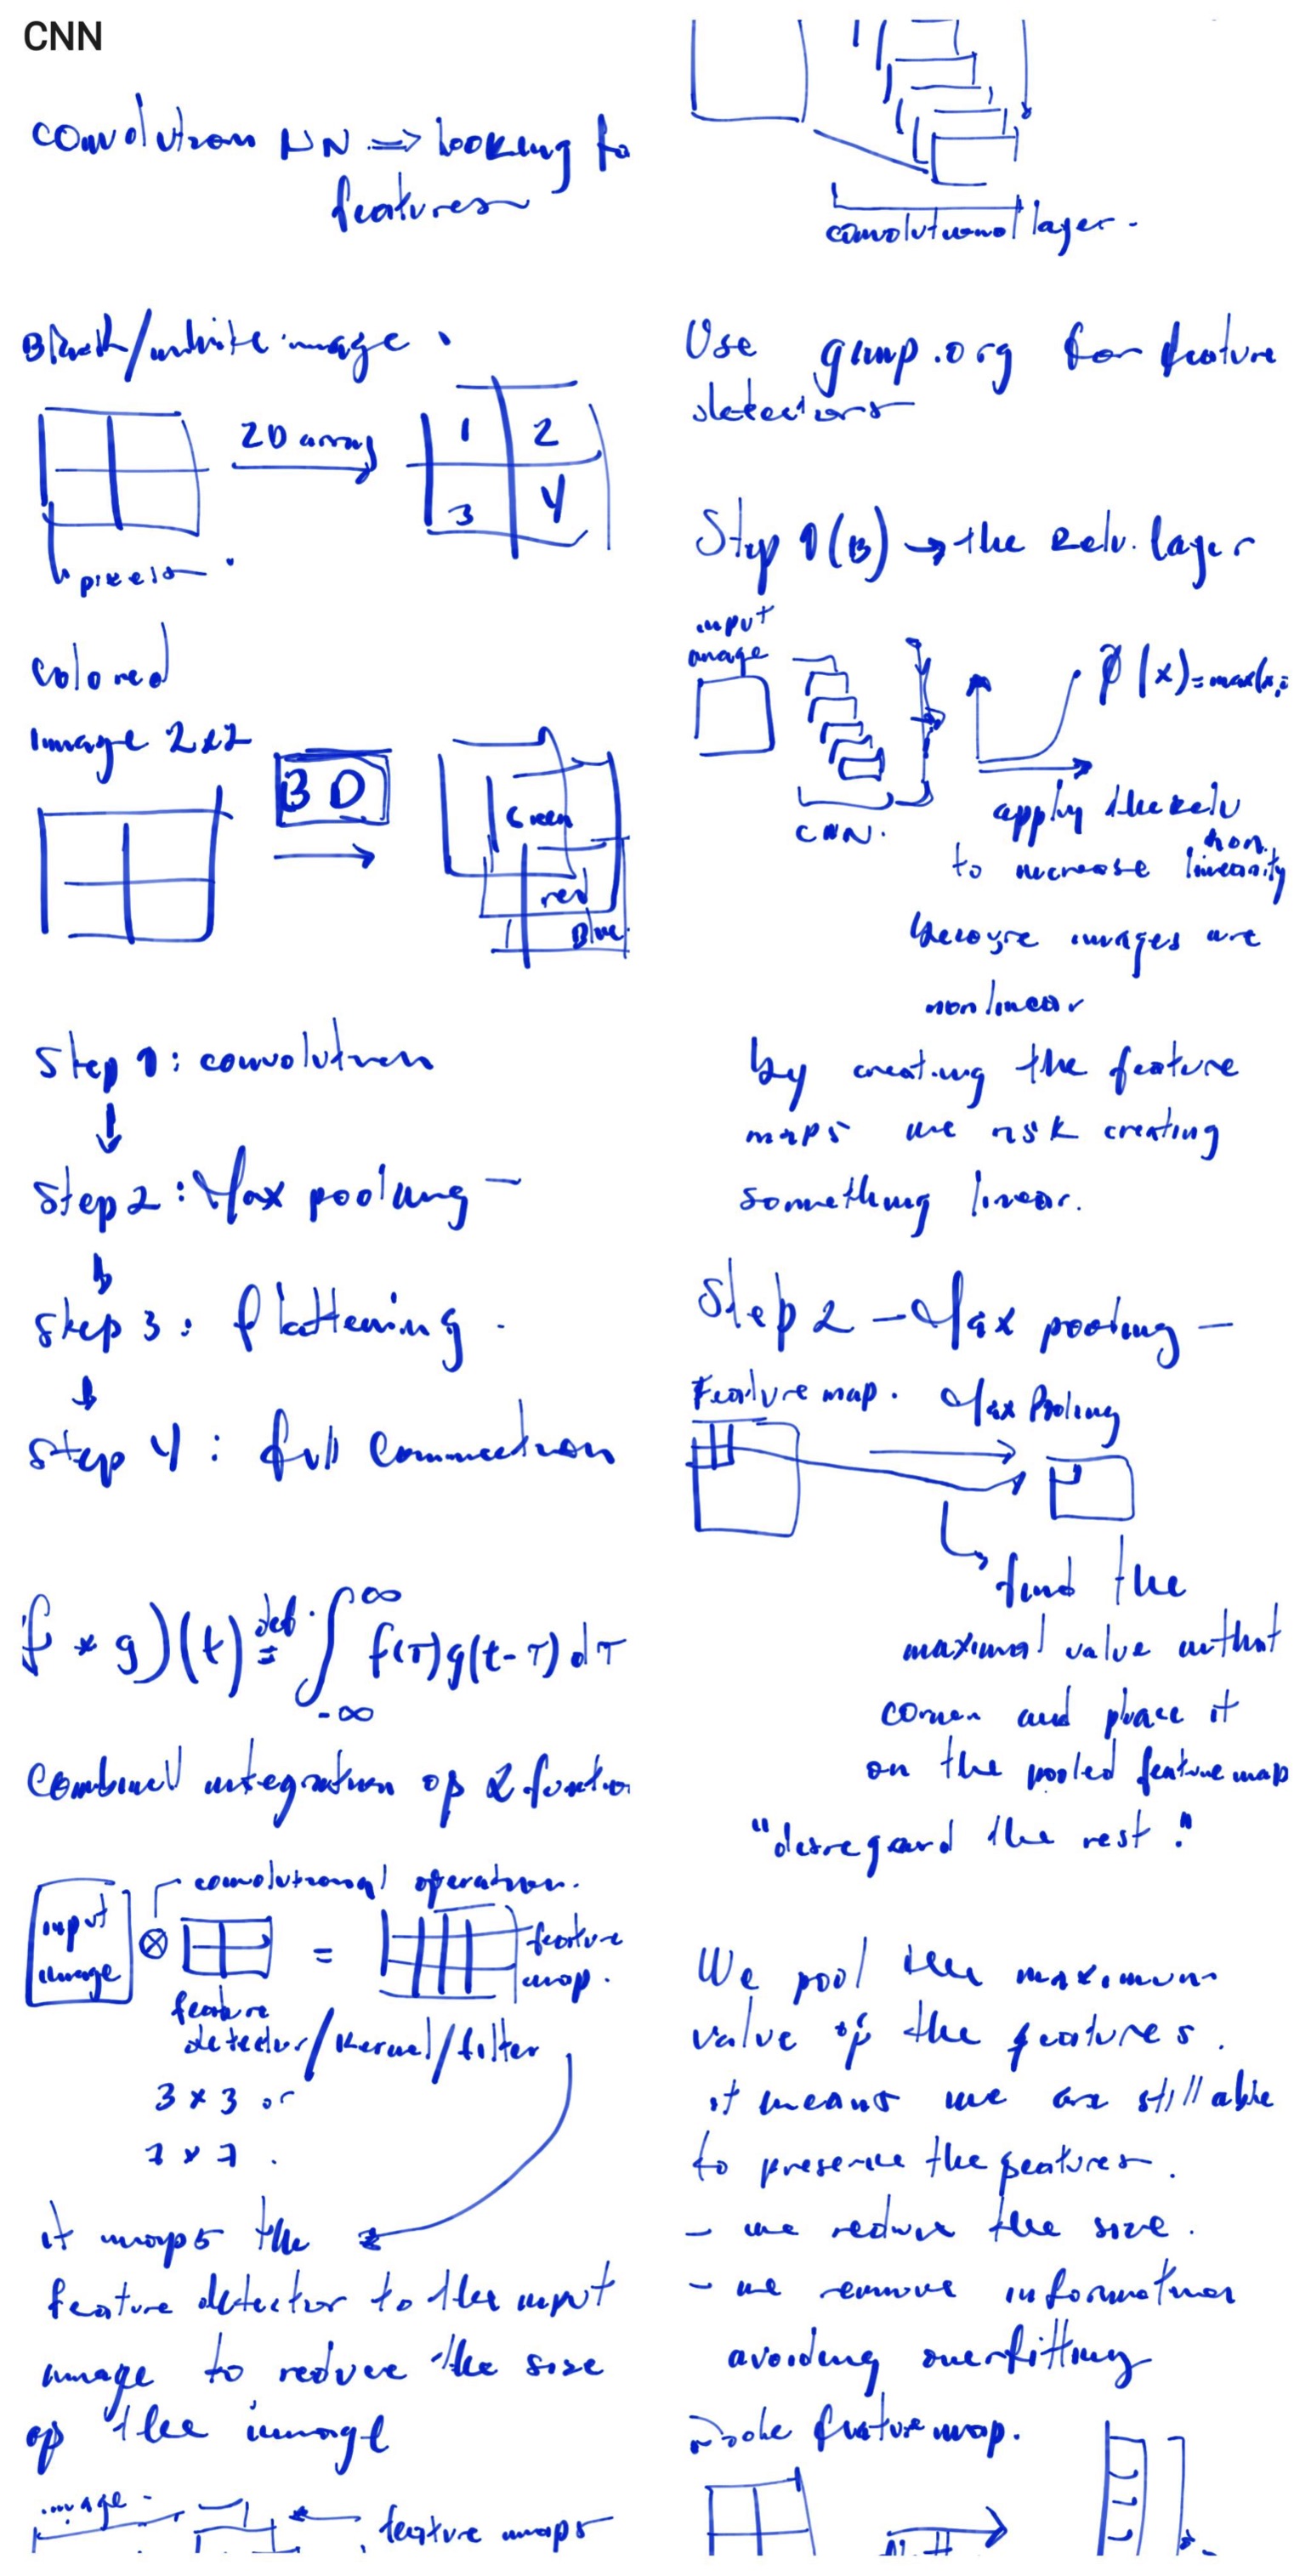 CNN
convolution NN => looking fo
features
Black/white image.
2D array
1 2
3 4
pixels
colored
image 2x2
3D
Green
red
Blue
Step 1: convolution
Step 2: Max pooling -
Step 3: flattening.
Step 4: full connection
f * g)(t) def. = ∫ ∞ -∞ f(τ)g(t-τ)dτ
combined integration of 2 functio
convolutional operation.
input
image
⊗ =
feature
map.
feature
detector/Kernel/filter
3 x 3 or
7 x 7.
it maps the
feature detector to the input
image to reduce the size
of the image
image
feature maps
convolutional layer.
Use gimp.org for feature
detectors
Step 1(B) → the Relu. layer
input
image
φ(x)=max(x,
CNN.
apply the relu
to increase non linearity
because images are
non linear
by creating the feature
maps we risk creating
something linear.
Step 2 - Max pooling -
Feature map. Max Pooling
find the
maximal value in that
corner and place it
on the pooled feature map
"desregard the rest."
We pool the maximum
value of the features.
it means we are still able
to preserve the features.
- we reduce the size.
- we remove information
avoiding overfitting
feature map.